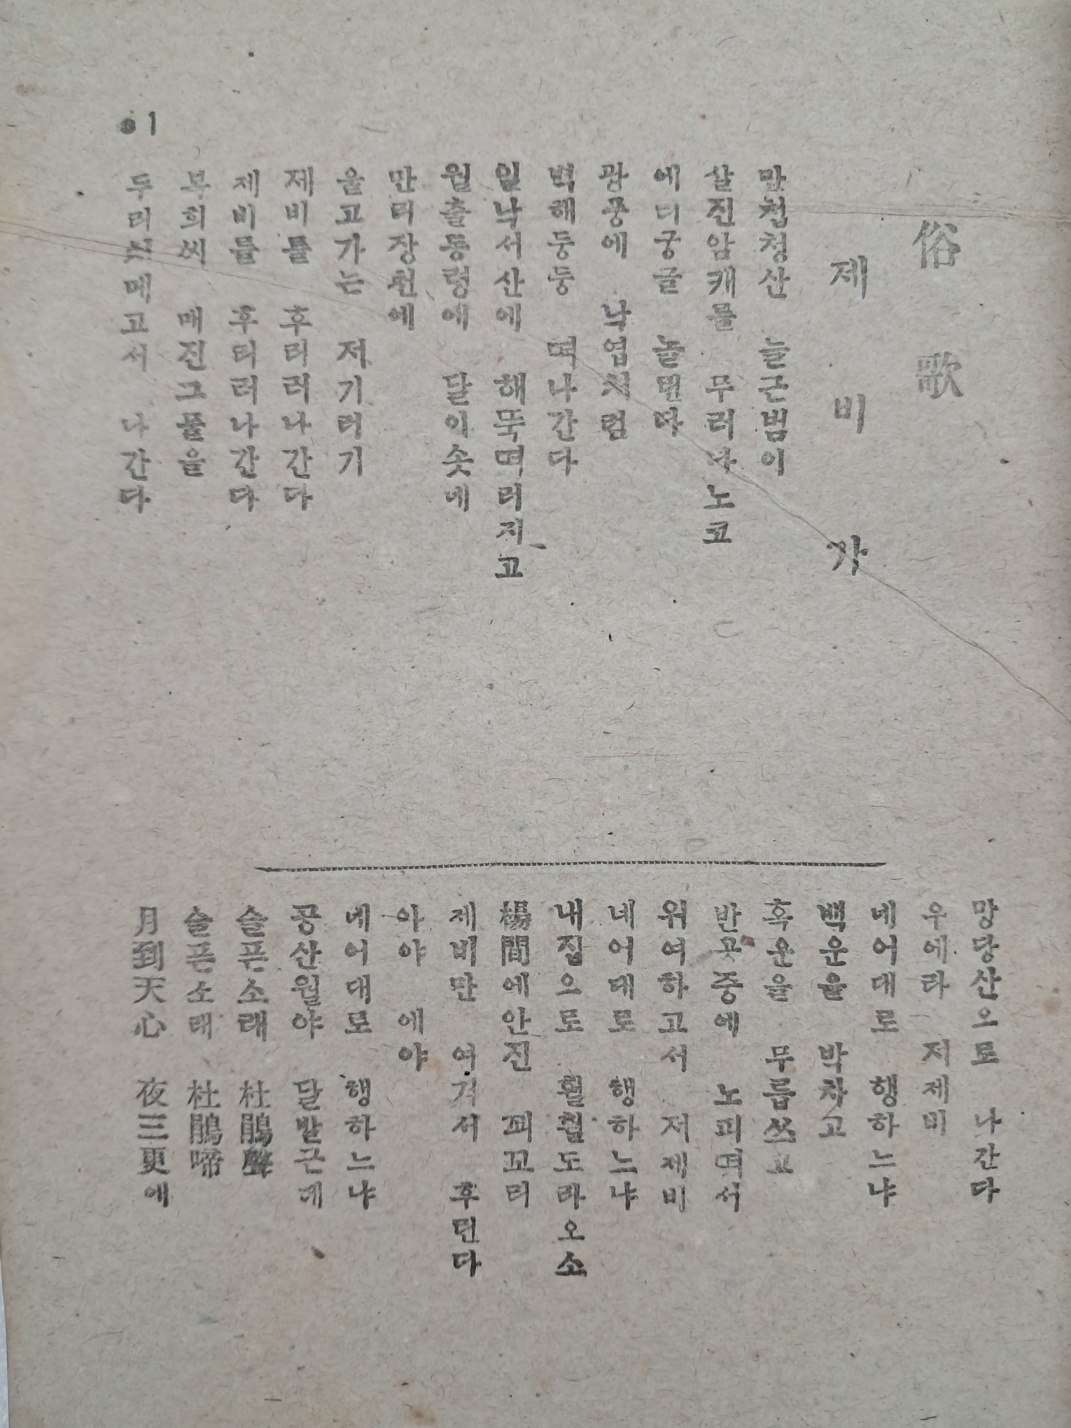 俗歌
제비가
만첩청산 늘근범이
살진암캐를 무러다노코
에더궁글 놀닌다
광풍에 낙엽처럼
벽해둥둥 ᄯᅥ나간다
일낙서산에 해뚝ᄯᅥ러지고
월출동령에 달이솟네
만리장천에
울고가는 저기러기
제비를 후리러나간다
제비를 후리러나간다
복희씨 매진그물을
두리쳐메고서 나간다
망당산으로 나간다
우에라 저제비
네어대로 행하느냐
백운을 박차고
흑운을 무릅쓰고
반공중에 노피ᄯᅥ서
위여하고서 저제비
네어대로 행하느냐
내집으로 훨훨도라오소
楊間에안진 ᄭᅬᄭᅩ리
제비만 여겨서 후린다
아야 에야
네어대로 행하느냐
공산월야 달발근데
슬픈소래 杜鵑聲
슬픈소래 杜鵑啼
月到天心 夜三更에
1